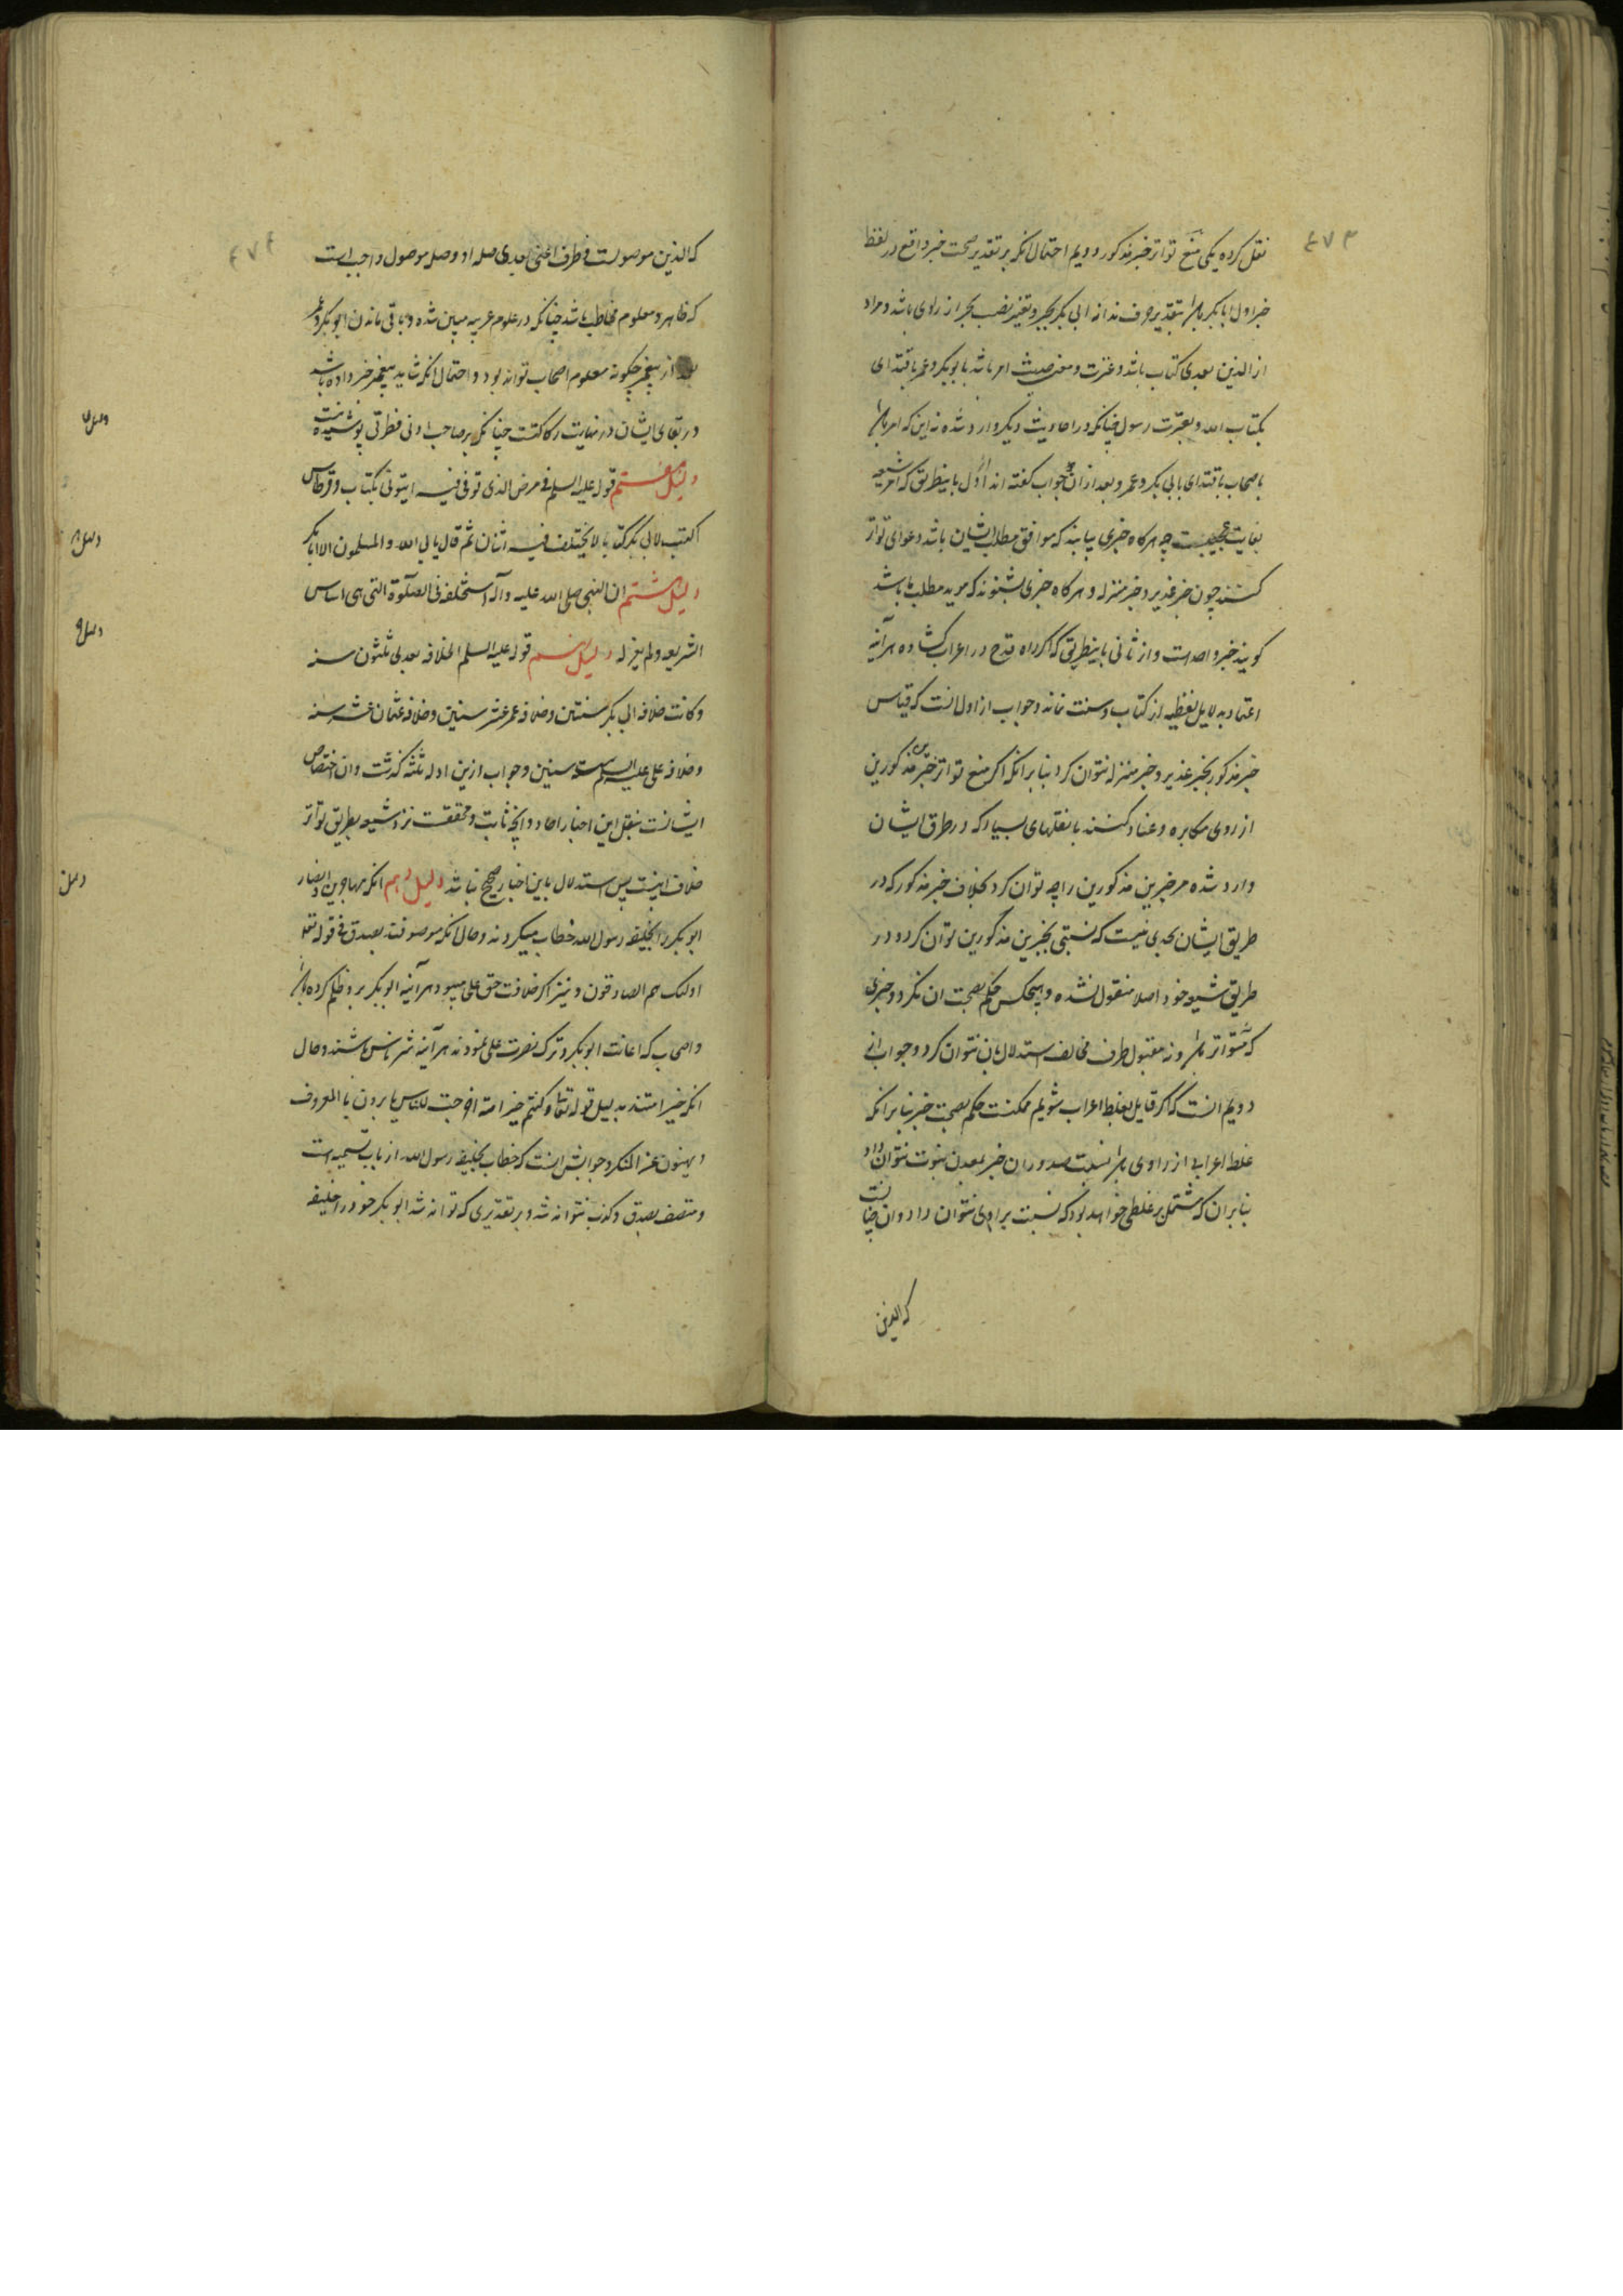 ۴۷۳
نقل کرده یکی منع تواتر خبر مذکور دویم احتمال انکه بر تقدیر صحت خبر واقع در لفظ
خبر اول ابابکر باشد بتقدیر حرف ندا نه ابی بکر بجر و تغییر نصب بجر از راوی باشد و مراد
از الذین بعدی کتاب باشد و عترت و معنی حدیث امر باشد بابوبکر و عمر باقتدای
بکتاب الله و بعترت رسول چنانکه در احادیث دیگر وارد شده نه این که امر باشد
باصحاب باقتدای بابی بکر و عمر و بعد ازان جواب گفته اند از اول باینطریق که امر شیعه
بغایت عجیبست چه هرکاه خبری بیابند که موافق مطلب ایشان باشد دعوای تواتر
کنند چون خبر غدیر و خبر منزله و هرکاه خبری بشنوند که موید مطلب ما باشد
کویند خبر واحد است و از ثانی باینطریق که اگر راه قدح در اعراب کشاده هرآینه
اعتماد بدلایل لفظیه از کتاب و سنت نماند و جواب از اول انست که قیاس
خبر مذکور بخبر غدیر و خبر منزله نتوان کرد بنابرانکه اکر منع تواتر خبرین مذکورین
از روی مکابره و عناد کنند با نقلهای بسیار که در طرق ایشان
وارد شده مر خبرین مذکورین را چه توان کرد بخلاف خبر مذکور که در
طریق ایشان بحدی نیست که نسبتی بخبرین مذکورین توان کرد و در
طریق شیعه خود اصلا منقول نشده و هیچکس حکم بصحت ان نکرد و خبری
که متواتر باشد و نه مقبول طرف مخالف استدلال بان نتوان کرد و جواب از
دویم انست که اکر قایل بغلط اعراب شویم ممکنست حکم بصحت خبر بنابرانکه
غلط اعرابی از راوی باشد نسبت صدور ان خبر بمعدن نبوت نتوان داد
بنابران که مشتمل بر غلطی خواهد بود که نسبت براوی نتوان داد و ان چنانست
که الذین
۴۷۴
که الذین موصولست و ظرف اعنی بعدی صله او و صله موصول واجب است
که ظاهر و معلوم مخاطب باشد چنانکه در علوم عربیه مبین شده و باقی ماندن ابوبکر و عمر
بعد از پیغمبر چکونه معلوم اصحاب تواند بود و احتمال انکه شاید پیغمبر خبر داده باشد
در بقای ایشان در نهایت رکاکتست چنانکه بر صاحب ادنی فطرتی پوشیده نیست
دلیل هفتم قوله علیه السلم فی مرض الذی توفی فیه ایتونی بکتاب و قرطاس
اکتب لابی بکر کتابا لا یختلف فیه اثنان ثم قال یابی الله والمسلمون الا ابابکر
دلیل هشتم ان النبی صلی الله علیه وآله استخلفه فی الصلوة التی هی اساس
الشریعه و لم یعزله دلیل نهم قوله علیه السلم الخلافه بعدی ثلثون سنه
و کانت خلافه ابی بکر سنتین و خلافه عمر عشر سنین و خلافه عثمان عشر سنه
و خلافه علی علیه السلم سته سنین و جواب ازین ادله ثلثه کذشت و ان اختصاص
ایشانست بنقل این اخبار احاد و انچه ثابت و محققست نزد شیعه بطریق تواتر
خلاف اینست پس استدلال باین اخبار صحیح نباشد دلیل دهم انکه مهاجرین و انصار
ابوبکر را بخلیفه رسول الله خطاب میکردند و حال انکه موصوفند بصدق فی قوله تعا
اولئک هم الصادقون و نیز اکر خلافت حق علی میبود هرآینه ابوبکر برو ظلم کرده باشد
و اصحاب که اعانت ابوبکر و ترک نصرت علی نمودند هرآینه شر ناس باشند و حال
انکه خیر امتند بدلیل قوله تعالی کنتم خیر امة اخرجت للناس یامرون بالمعروف
و ینهون عن المنکر و جوابش انست که خطاب بخلیفه رسول الله از باب تسمیه است
و متصف بصدق و کذب نتواند شد و بر تقدیری که تواند شد ابوبکر خود را خلیفه
دلیل ۷
دلیل ۸
دلیل ۹